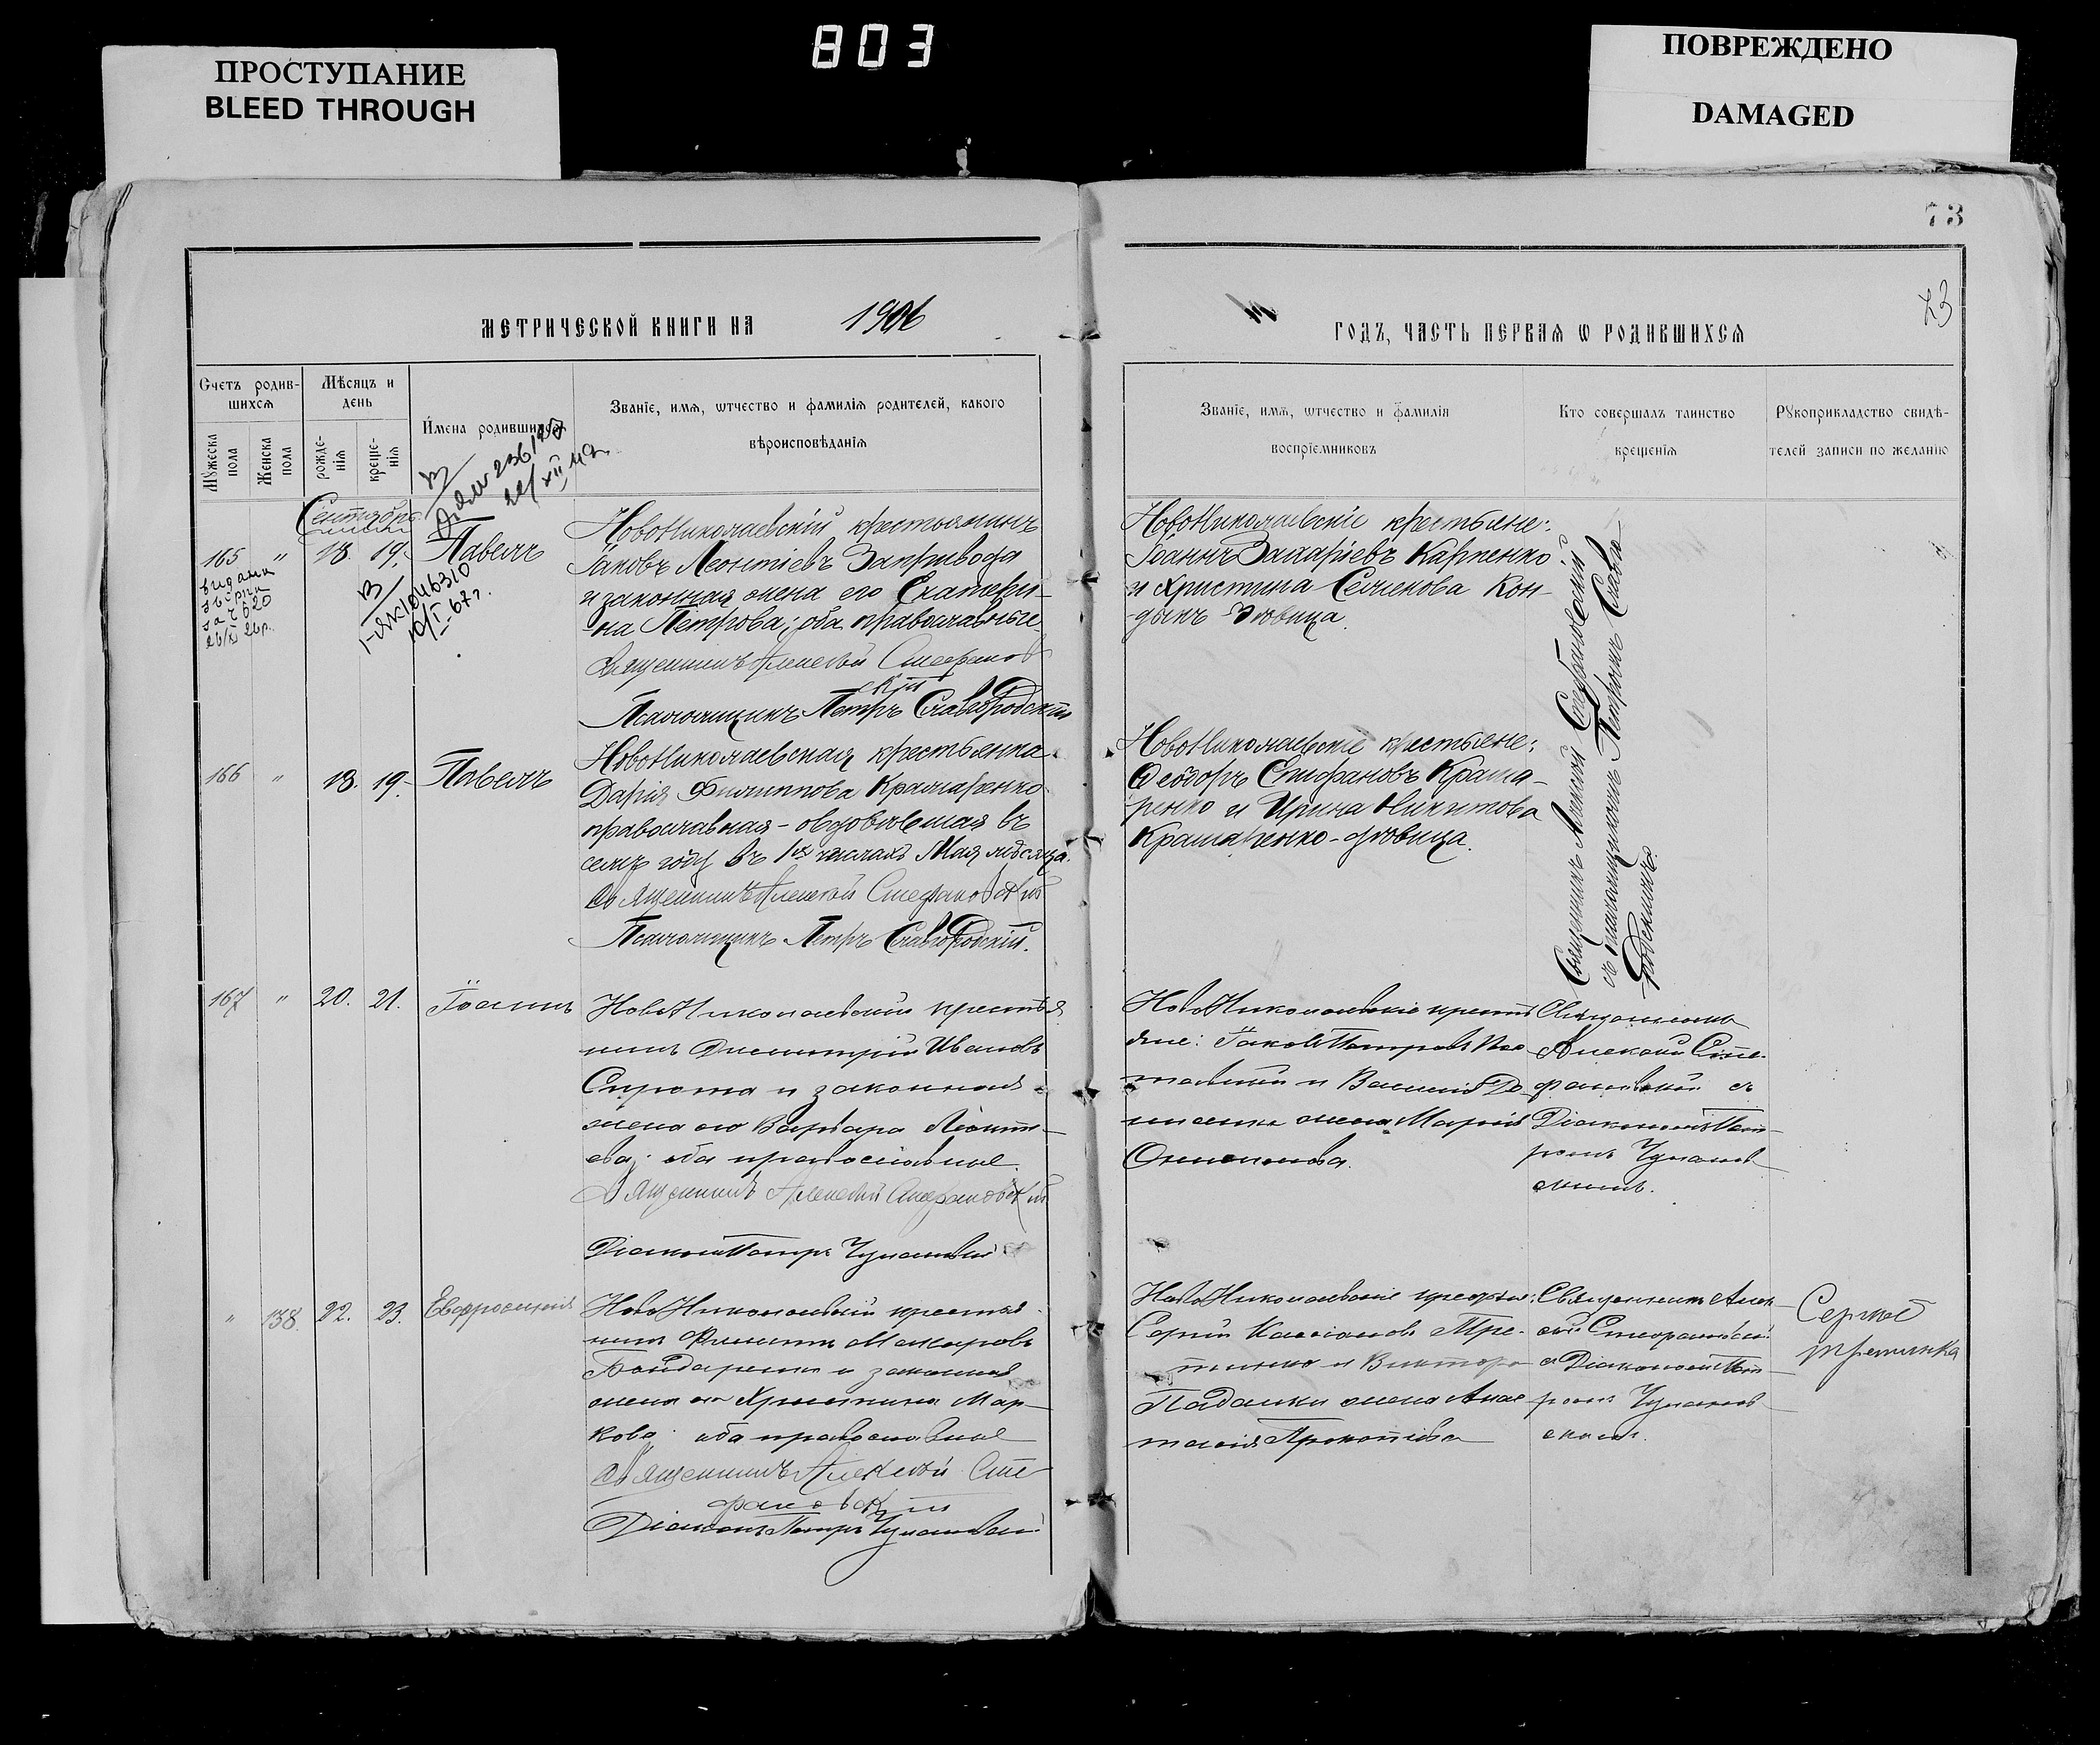 803
ПРОСТУПАНИЕ
BLEED THROUGH
ПОВРЕЖДЕНО
DAMAGED
73
73
МЕТРИЧЕСКОЙ КНИГИ НА 1906
ГОДЪ, ЧАСТЬ ПЕРВАЯ Ѡ РОДИВШИХСЯ
Счетъ родив-
шихся
Мѣсяцъ и
день
Мужеска
пола
Женска
пола
рожде-
нія
креще-
нія
Имена родившихся
Званіе, имя, ѡтчество и фамилія родителей, какого
вѣроисповѣданія
Званіе, имя, ѡтчество и фамилія
воспріемниковъ
Кто совершалъ таинство
крещенія
Рꙋкоприкладство свидѣ-
телей записи по желанію
Сентябрь
165 " 18. 19. Павелъ
видана
26/XI 26р.
В
I-ЯК 1046310
10/I-67г.
НовоНиколаевскій крестьянинъ
Іаковъ Леонтіевъ Запривода
и законная жена его Екатери-
на Петрова; оба православные
Священникъ Алексѣй Стефанов
скій
Псаломщикъ Петръ Славгородскій
НовоНиколаевскіе крестьяне:
Іоаннъ Захаріевъ Карпенко
и Христина Семенова Кон-
дыкъ
Священникъ Алексѣй Стефановскій
съ псаломщикомъ Петромъ Славго-
родскимъ.
166 " 18. 19. Павелъ
НовоНиколаевская крестьянка
Дарія Филиппова Крамаренко
православная - овдовѣвшая въ
семъ году въ 1хъ числахъ Мая мѣсяца.
Священникъ Алексѣй Стефановскій
Псаломщикъ Петръ Славгородскій.
НовоНиколаевскіе крестьяне:
Ѳеодоръ Стефановъ Крама-
ренко и Ирина Никитова
Крамаренко - дѣвица.
167 " 20. 21. Іоаннъ
НовоНиколаевскій крестья
нинъ Димитрій Ивановъ
Сирота и законная
жена его Варвара Леонти-
ева; оба православные.
Священникъ Алексѣй Стефановскій
Діаконъ Петръ Чумаевскій
НовоНиколаевскіе кресть
яне: Іаковъ Петровъ
и Василія
жена Марія
Священникъ
Алексѣй Сте-
фановскій съ
Діакономъ Пет-
ромъ
скимъ.
" 138 22. 23. Евфросинія
НовоНиколаевскій крестья
нинъ Филиппъ Макаровъ
Бондаренко и законная
жена его Христина Мар-
кова; оба православные
Священникъ Алексѣй Сте
фановскій
Діаконъ Петръ
НовоНиколаевскіе крестьяне:
Сергій Кассіановъ Тре-
и Виктора
жена Анас
тасія Прокопіева
Священникъ Алек-
сѣй Стефановскій
съ Діакономъ Пет-
ромъ
скимъ.
Сергей